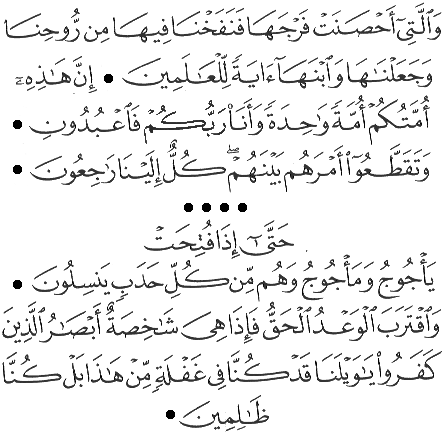 وَٱلَّتِىٓ أَحْصَنَتْ فَرْجَهَا فَنَفَخْنَا فِيهَا مِن رُّوحِنَا
وَجَعَلْنَٰهَا وَٱبْنَهَآ ءَايَةً لِّلْعَٰلَمِينَ • إِنَّ هَٰذِهِۦٓ
أُمَّتُكُمْ أُمَّةً وَٰحِدَةً وَأَنَا۠ رَبُّكُمْ فَٱعْبُدُونِ •
وَتَقَطَّعُوٓا۟ أَمْرَهُم بَيْنَهُمْ ۖ كُلٌّ إِلَيْنَا رَٰجِعُونَ •
• • • •
حَتَّىٰٓ إِذَا فُتِحَتْ
يَأْجُوجُ وَمَأْجُوجُ وَهُم مِّن كُلِّ حَدَبٍ يَنسِلُونَ •
وَٱقْتَرَبَ ٱلْوَعْدُ ٱلْحَقُّ فَإِذَا هِىَ شَٰخِصَةٌ أَبْصَٰرُ ٱلَّذِينَ
كَفَرُوا۟ يَٰوَيْلَنَا قَدْ كُنَّا فِى غَفْلَةٍ مِّنْ هَٰذَا بَلْ كُنَّا
ظَٰلِمِينَ •